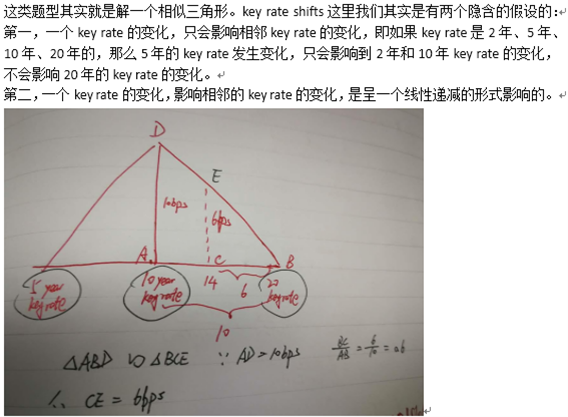 这类题型其实就是解一个相似三角形。key rate shifts 这里我们其实是有两个隐含的假设的：
第一，一个 key rate 的变化，只会影响相邻 key rate 的变化，即如果 key rate 是 2 年、5 年、
10 年、20 年的，那么 5 年的 key rate 发生变化，只会影响到 2 年和 10 年 key rate 的变化，
不会影响 20 年的 key rate 的变化。
第二，一个 key rate 的变化，影响相邻的 key rate 的变化，是呈一个线性递减的形式影响的。
D
E
10bps
6bps
A
C
B
5 year
key rate
10 year
key rate
14
6
20
key rate
10
△ABD ∽ △BCE ∵ AD=10bps
BC/AB = 6/10 = 0.6
∴ CE = 6bps